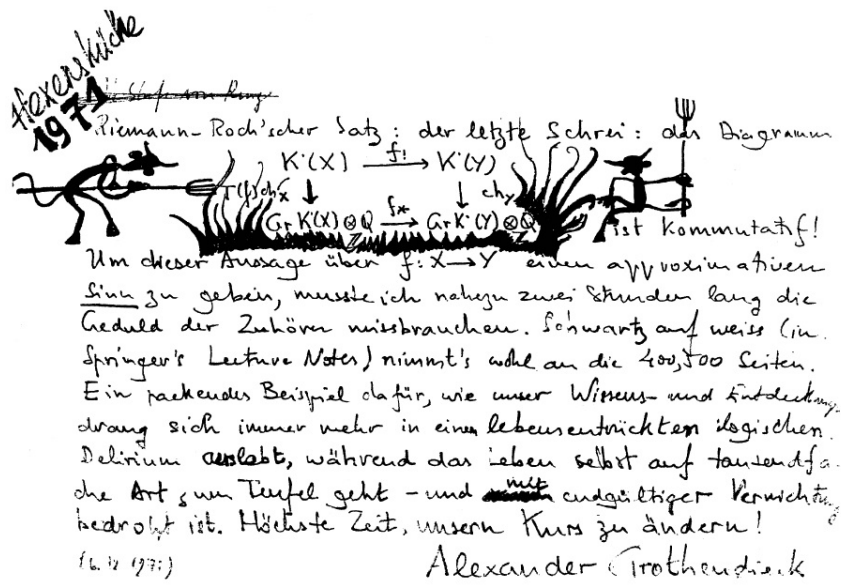 Hexenküche
1971
Riemann-Roch'scher Satz: der letzte Schrei: das Diagramm
K˙(X) f! → K˙(Y)
↓ ↓ ch_Y
Gr K˙(X)⊗Q f* → Gr K˙(Y)⊗Q
Z Z
ist kommutatif!
Um dieser Aussage über f: X → Y einen approximativen
Sinn zu geben, musste ich nahezu zwei Stunden lang die
Geduld der Zuhörer missbrauchen. Schwartz auf weiss (in
Springer's Lecture Notes) nimmt's wohl an die 400,500 Seiten.
Ein packendes Beispiel dafür, wie unser Wissens- und Entdeckungs-
drang sich immer mehr in einem lebensentrückten logischen
Delirium auslebt, während das Leben selbst auf tausendfa-
che Art zum Teufel geht - und mit endgültiger Vernichtung
bedroht ist. Höchste Zeit, unsern Kurs zu ändern!
Alexander Grothendieck